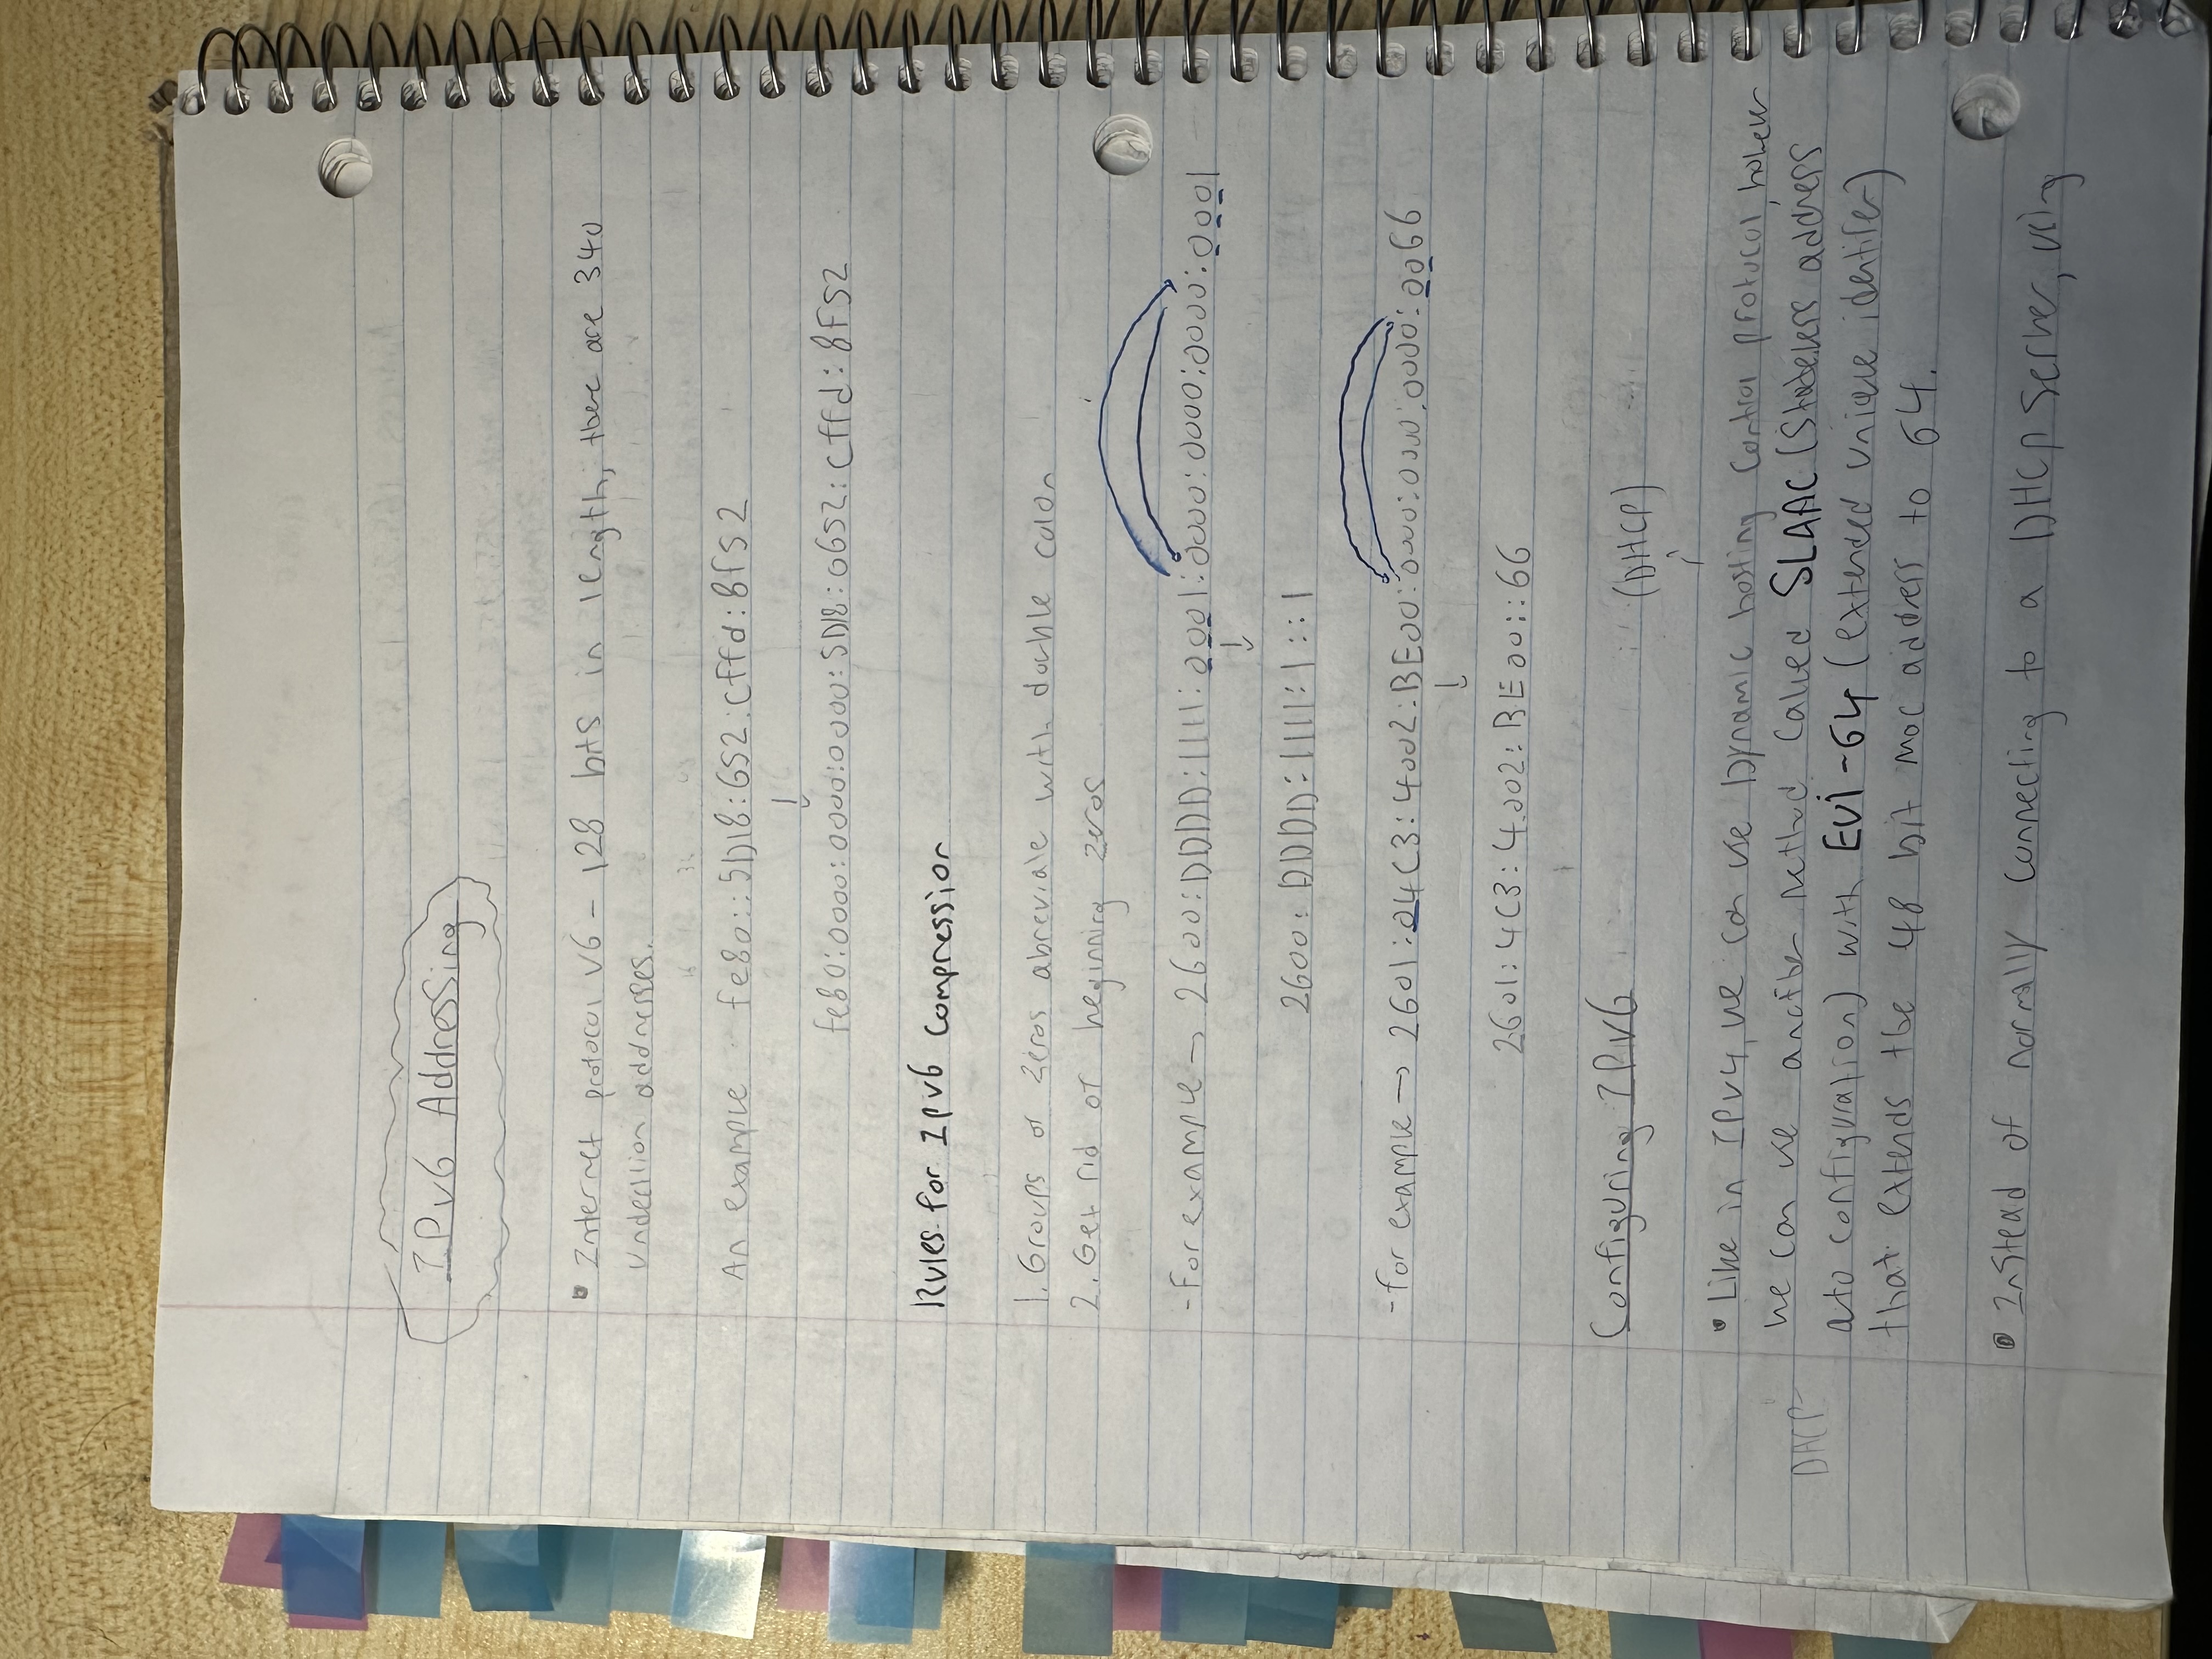 IPv6 Addressing
Internet protocol v6 - 128 bits in length, there are 340
undecillion addresses.
16 32 48
An example fe80::5D18:652:cffd:8f52
↓
fe80:0000:0000:0000:5D18:0652:cffd:8F52
Rules for IPv6 Compression
1. Groups of zeros abreviate with double colon
2. Get rid of beginning zeros
- For example → 2600:DDDD:1111:0001:0000:0000:0000:0001
↓
2600:DDDD:1111:1::1
- for example → 2601:04C3:4002:BE00:0000:0000:0000:0066
↓
2601:4C3:4002:BE00::66
Configuring IPv6
(DHCP)
Like in IPv4, we can use Dynamic hosting Control protocol, however
we can use another method called SLAAC (Stateless address
DACP
ato configuration) with EUi-64 (extended unique identifer)
that extends the 48 bit Mac address to 64.
Instead of normally connecting to a DHCP server, using